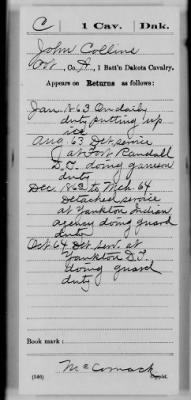 C 1 Cav. Dak.
John Collins
Co. A, 1 Batt'n Dakota Cavalry.
Appears on Returns as follows:
Jan. 1863 On daily
duty putting up
ice
Aug. 63 Det. service
at Fort Randall
D.T. doing garrison
duty
Dec. 1863 to Mch. 64
Detached service
at Yankton Indian
agency doing guard
duty
Oct. 64 Det. serv. at
Yankton D.T.
doing guard
duty
Book mark:
McCormack
(546) Copyist.